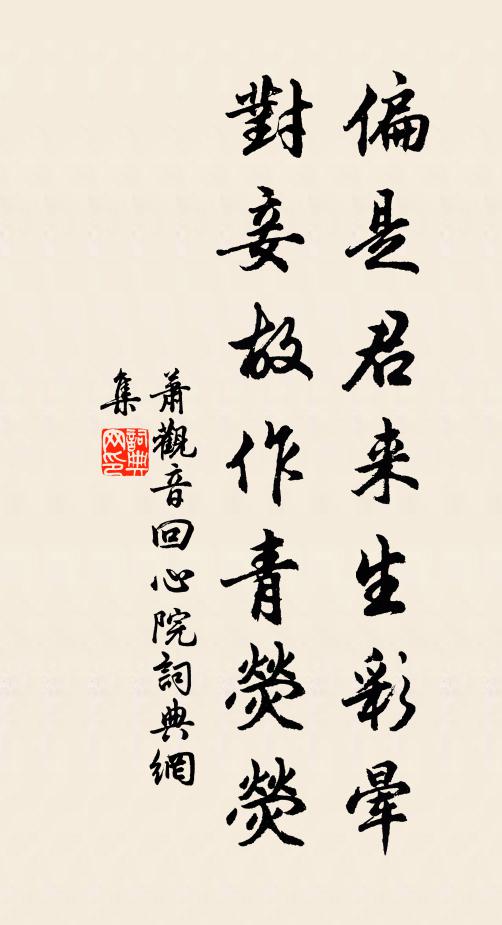 偏是君来生彩暈
對妾故作青熒熒
蕭觀音回心院詞典網
集
詞典网印